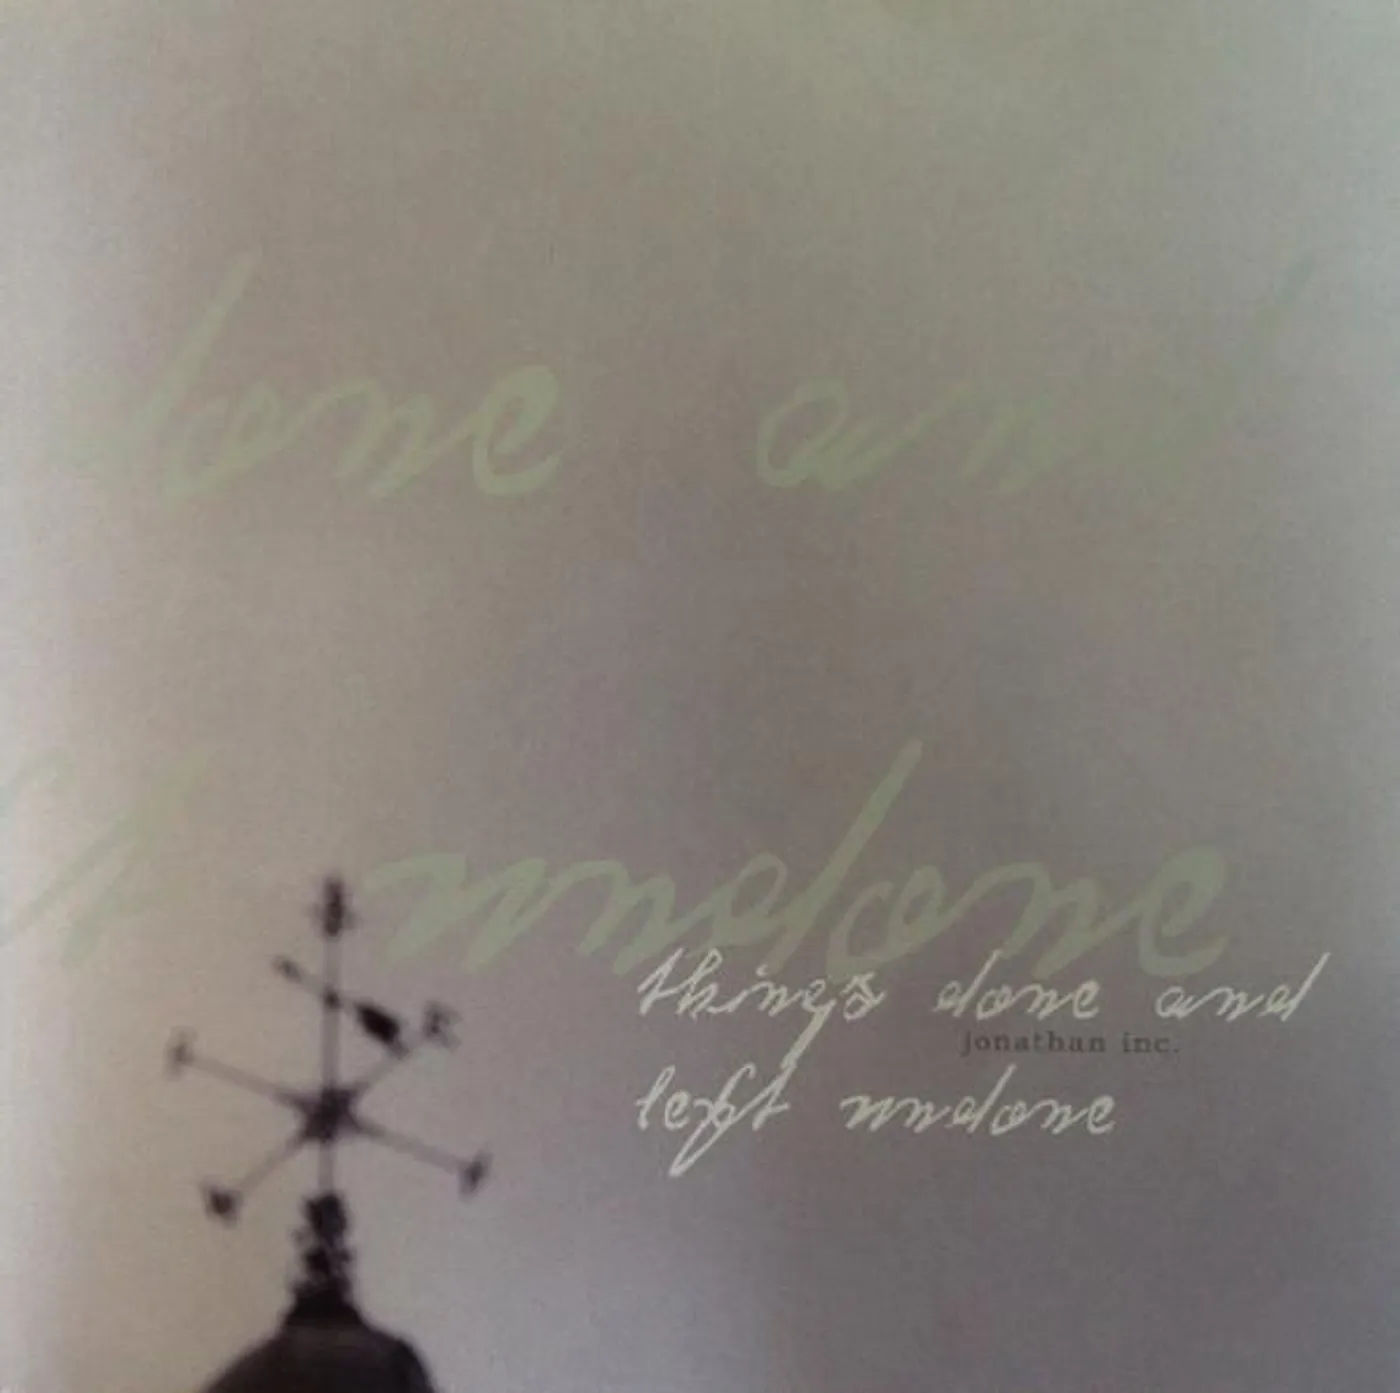 done and
undone
things done and
jonathan inc.
left undone